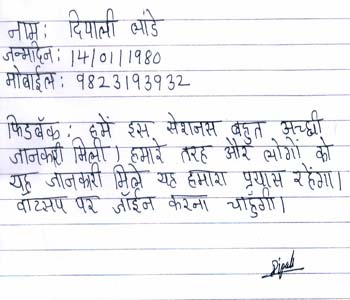 नाम: दिपाली लांडे
जन्मदिन: 14/01/1980
मोबाईल: 9823193932
फिडबॅक: हमें इस सेशनस बहुत अच्छी
जानकारी मिली। हमारे तरह और लोगों को
यह जानकारी मिले यह हमारा प्रयास रहेंगा।
वाटसप पर जॉईन करना चाहुँगी।
Dipali